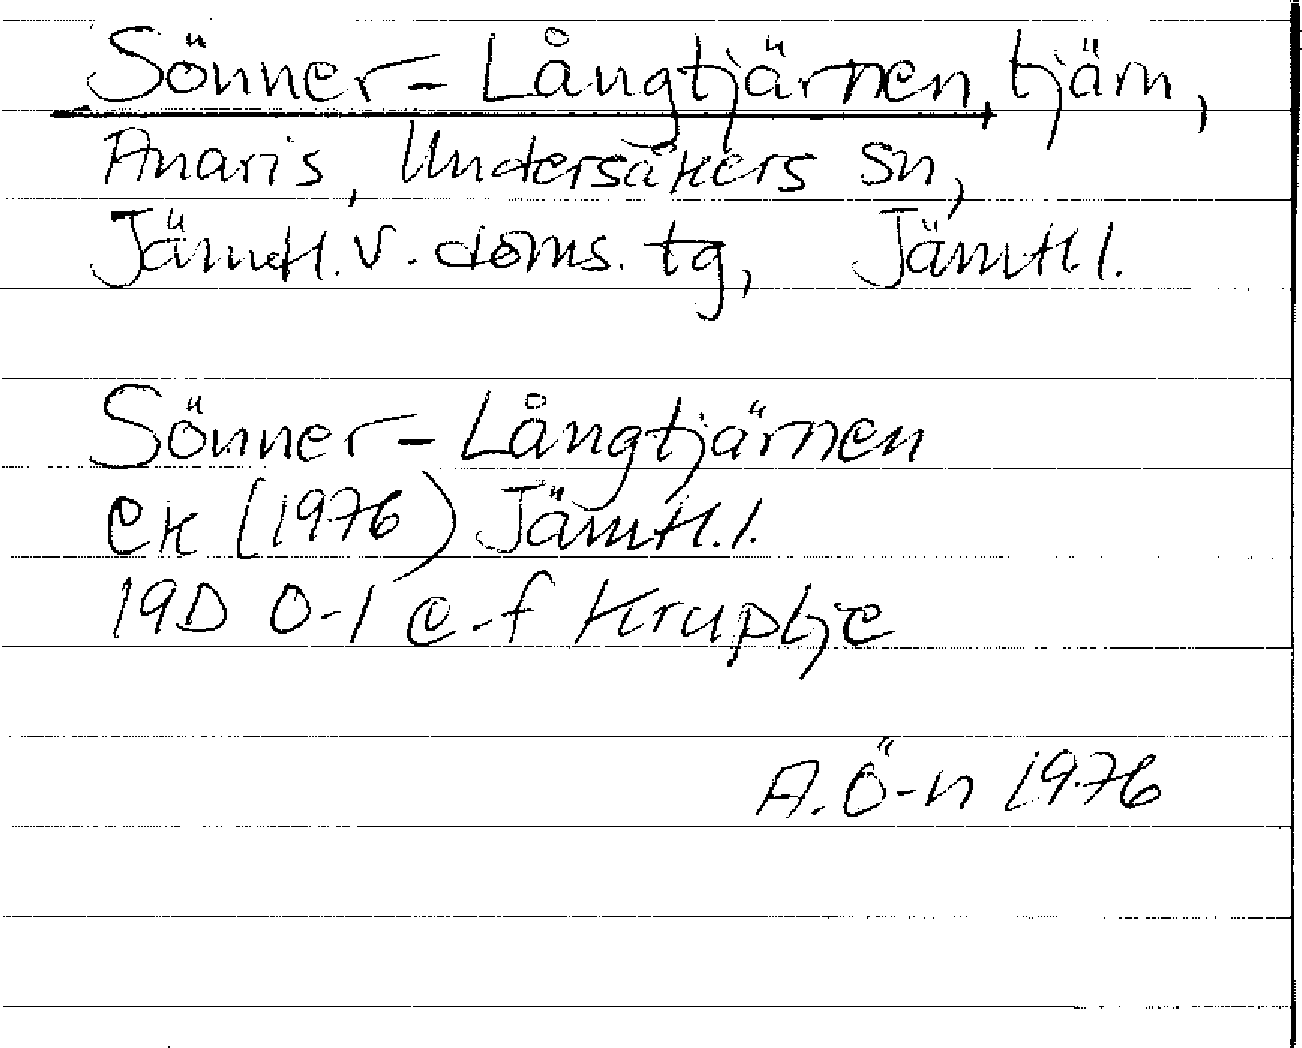 Sönner-Långtjärnen, tjärn,
Anaris, Undersåkers sn,
Jämtl. v. doms. tg, Jämtl. l.
Sönner-Långtjärnen
ek (1976) Jämtl. l.
19D 0-1 e-f Kruptje
A. Ö-n 1976